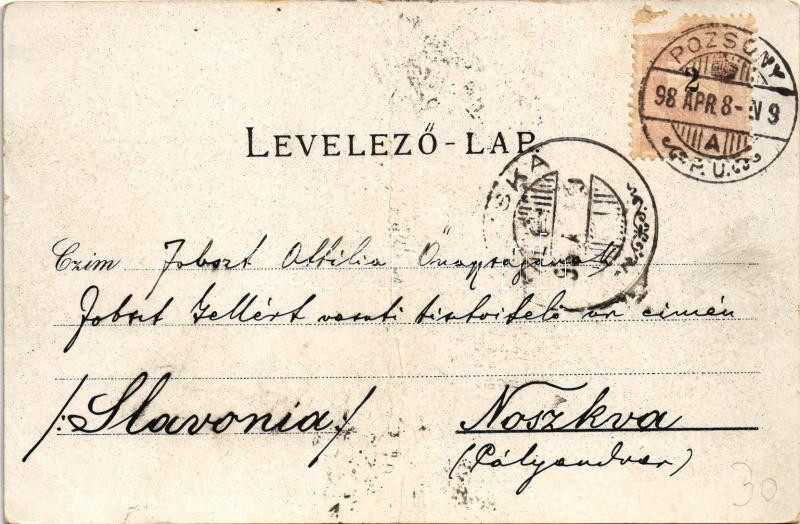 POZSONY
2
98 APR 8 - N 9
A
P. U.
LEVELEZŐ-LAP
SKA
Czim Jobszt Attilia Önagyságának
Jobszt Gellért vasuti tisztviselő ur cimén
/:Slavonia:/ Noszkva
(Pályaudvar)
30